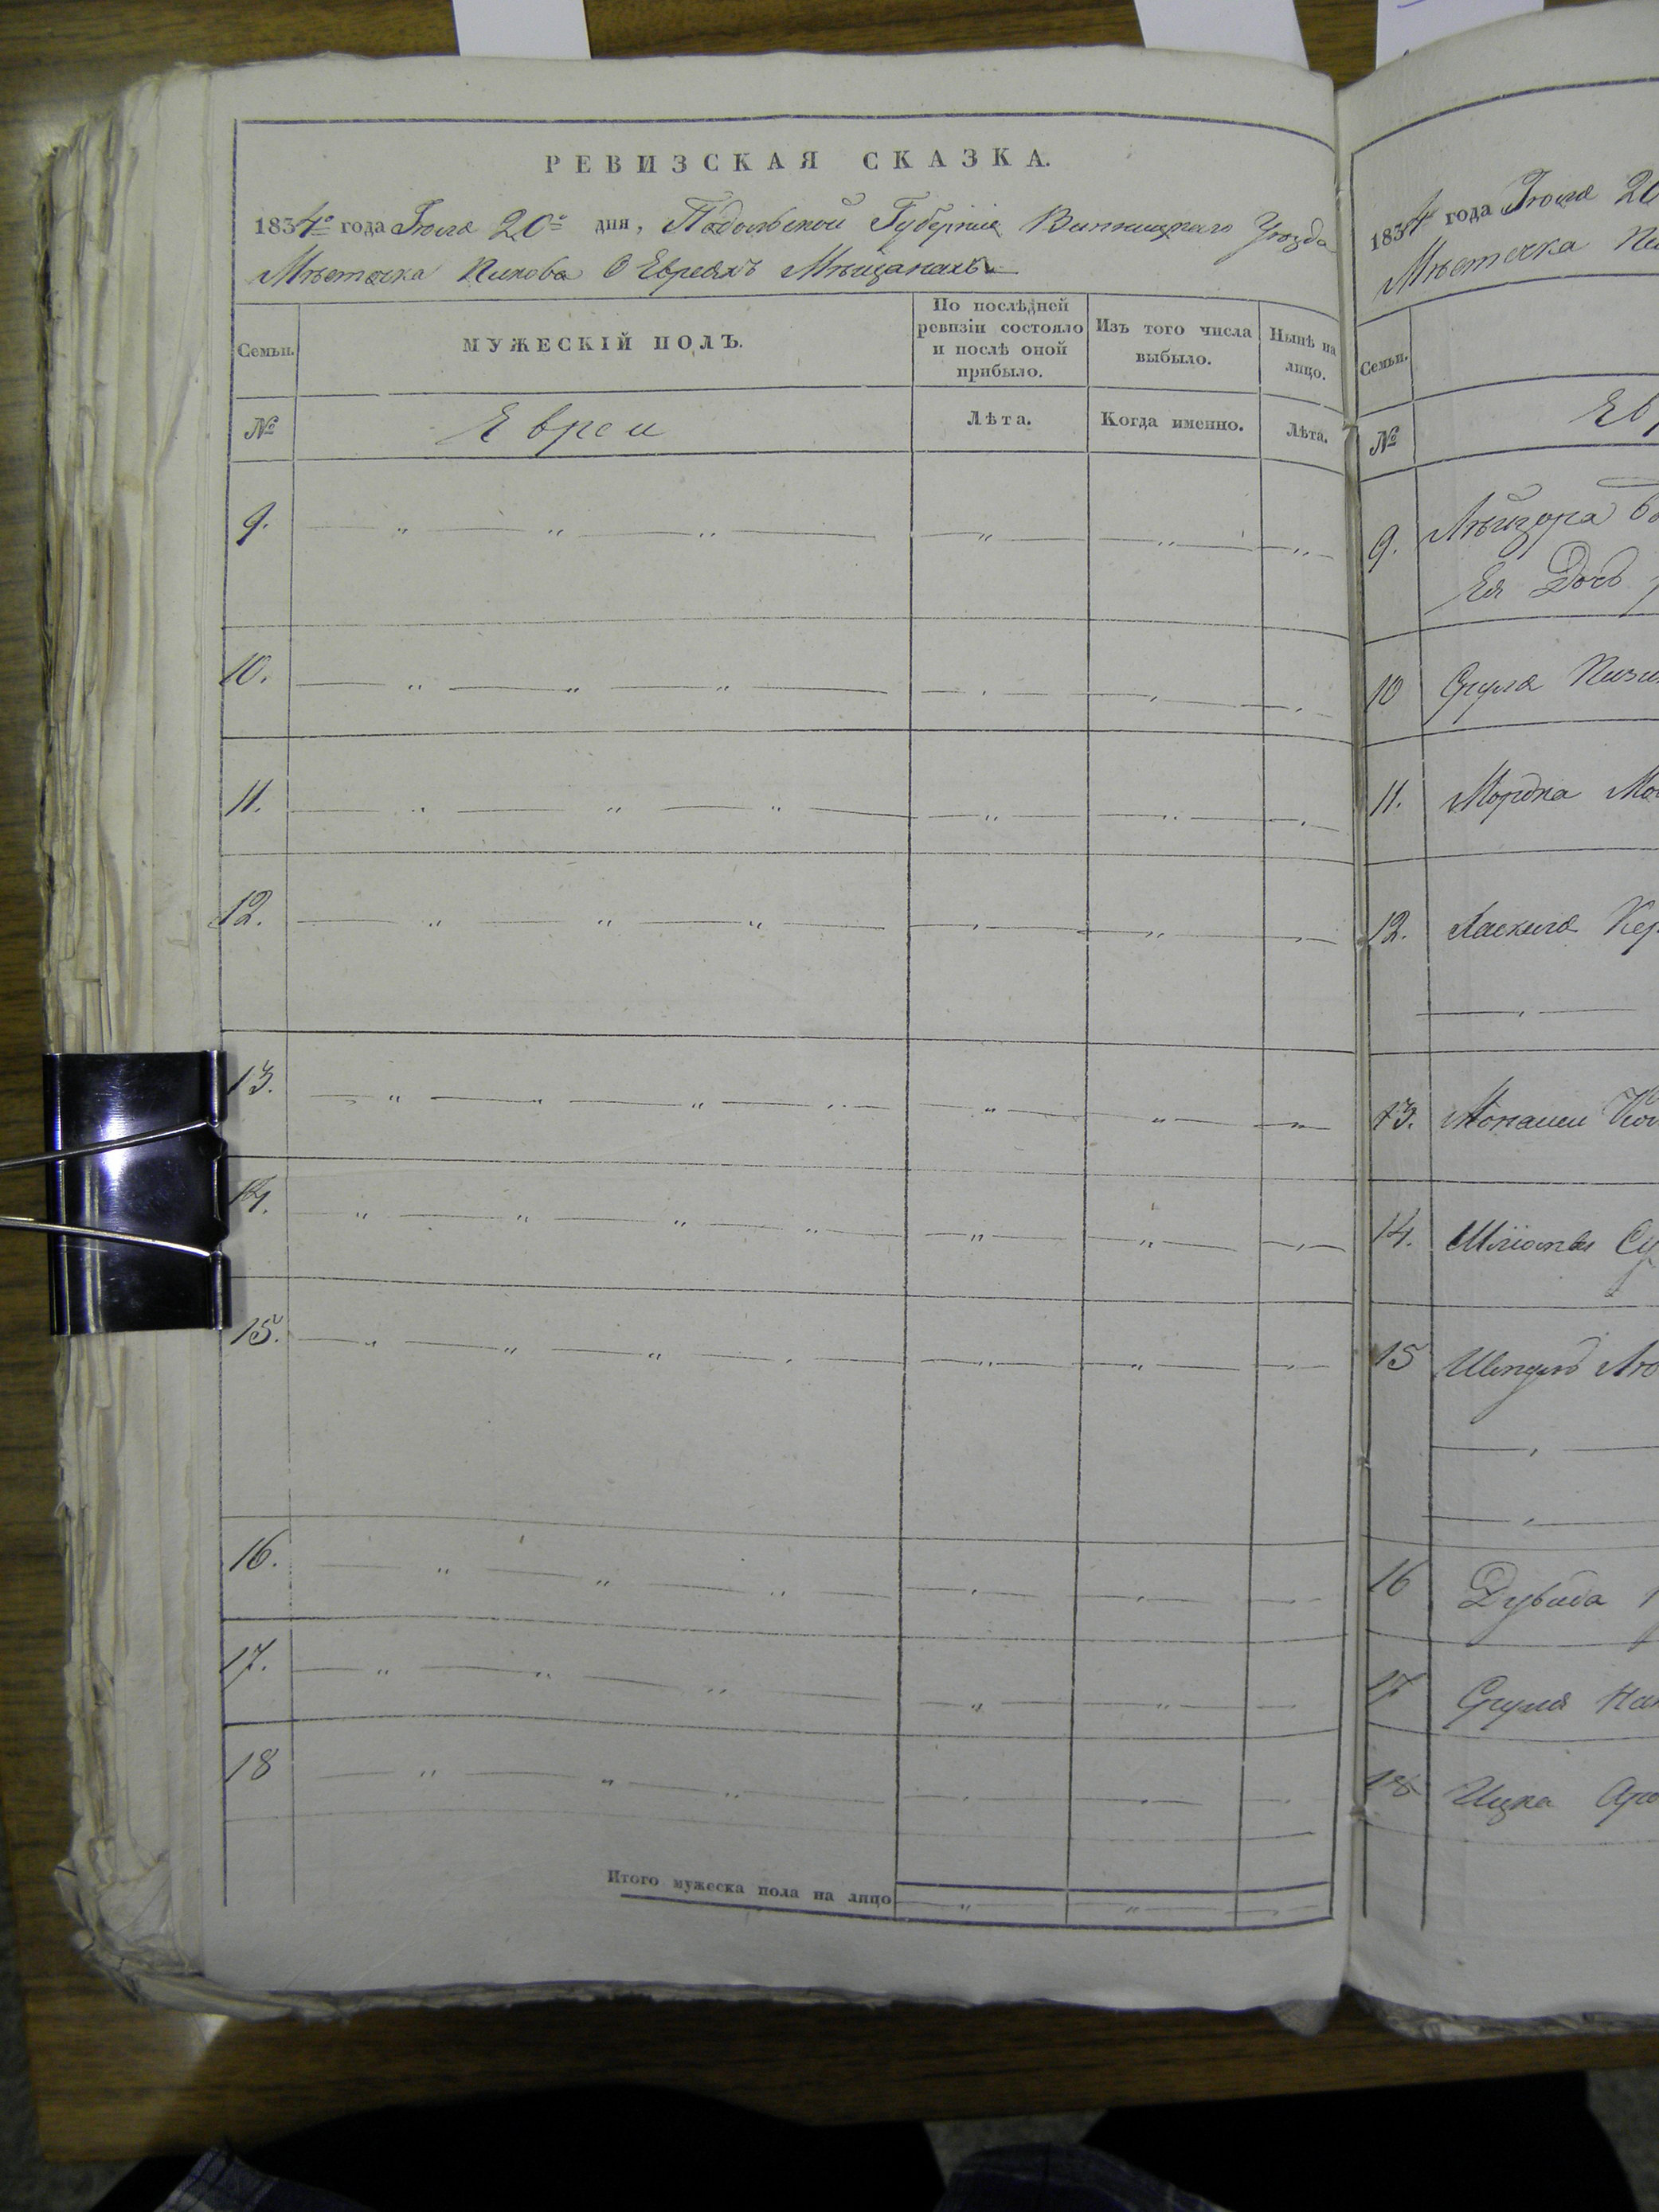 РЕВИЗСКАЯ СКАЗКА.
1834го года Июля 20го дня, Подольской Губерніи Винницкаго Уѣзда
Мѣстечка Пикова О Евреяхъ Мѣщанахъ
Семьи. МУЖЕСКІЙ ПОЛЪ. По послѣдней ревизіи состояло и послѣ оной прибыло. Изъ того числа выбыло. Нынѣ на лицо.
№ Евреи Лѣта. Когда именно. Лѣта.
9. — „ — „ — „ — — „ — — „ — — „ —
10. — „ — „ — „ — — „ — — „ — — „ —
11. — „ — „ — „ — — „ — — „ — — „ —
12. — „ — „ — „ — — „ — — „ — — „ —
13. — „ — „ — „ — „ — — „ — — „ — — „ —
14. — „ — „ — „ — „ — — „ — — „ — — „ —
15. — „ — „ — „ — „ — — „ — — „ — — „ —
16. — „ — „ — „ — — „ — — „ — — „ —
17. — „ — „ — „ — — „ — — „ — —
18 — „ — „ — „ — — „ — — „ — — „ —
Итого мужеска пола на лицо — „ — — „ — — „ —
1834 года Июля 20
Мѣстечка
Семьи.
№
9.
Ея Дочь
10 Сруля
11. Мордка
12.
13.
14.
15
16
17 Сруля
18. Ицка